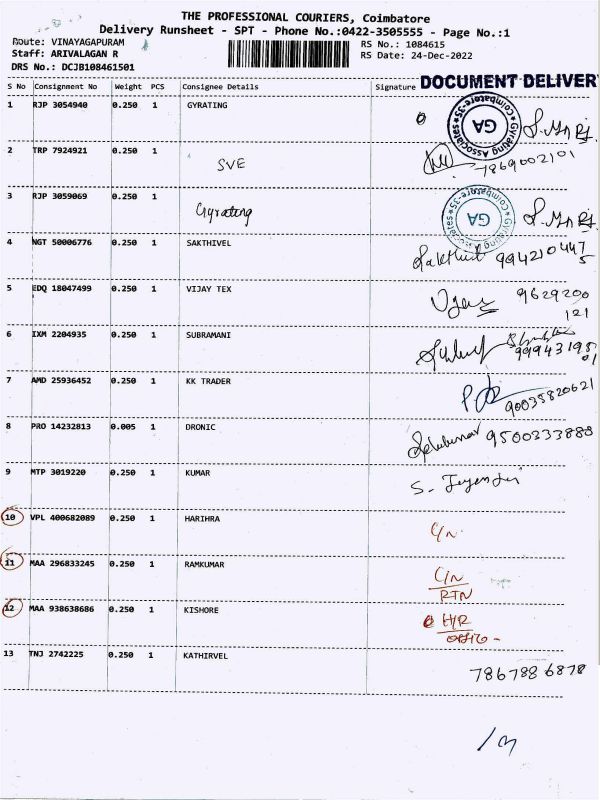 THE PROFESSIONAL COURIERS, Coimbatore
Delivery Runsheet - SPT - Phone No.:0422-3505555 - Page No.:1
Route: VINAYAGAPURAM
Staff: ARIVALAGAN R
DRS No.: DCJB108461501
RS No.: 1084615
RS Date: 24-Dec-2022
DOCUMENT DELIVER
S No Consignment No Weight PCS Consignee Details Signature
1 RJP 3054940 0.250 1 GYRATING
Gyrating Associates Coimbatore-35 GA
2 TRP 7924921 0.250 1 SVE 7869002101
3 RJP 3059069 0.250 1 Gyrating
Gyrating Associates Coimbatore-35 GA
4 NGT 50006776 0.250 1 SAKTHIVEL Sakthivel 9942104475
5 EDQ 18047499 0.250 1 VIJAY TEX 9629200
121
6 IXM 2204935 0.250 1 SUBRAMANI
7 AMD 25936452 0.250 1 KK TRADER 90035820621
8 PRO 14232813 0.005 1 DRONIC 9500333888
9 MTP 3019220 0.250 1 KUMAR
10 VPL 400682089 0.250 1 HARIHRA C/N
11 MAA 296833245 0.250 1 RAMKUMAR C/N
RTN
12 MAA 938638686 0.250 1 KISHORE H/R
13 TNJ 2742225 0.250 1 KATHIRVEL 7867886878